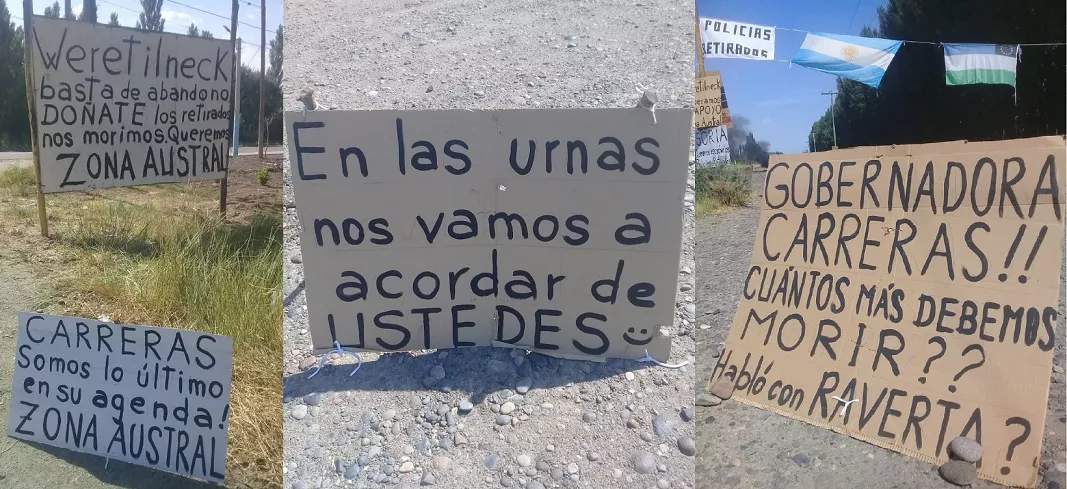 Weretilneck
basta de abandono
DOÑATE los retirados
nos morimos.Queremos
ZONA AUSTRAL
CARRERAS
Somos lo último
en su agenda!
ZONA AUSTRAL
En las urnas
nos vamos a
acordar de
USTEDES
POLICIAS
RETIRADOS
APOYO
GOBERNADORA
CARRERAS!!
CUÁNTOS MÁS DEBEMOS
MORIR??
Habló con RAVERTA?